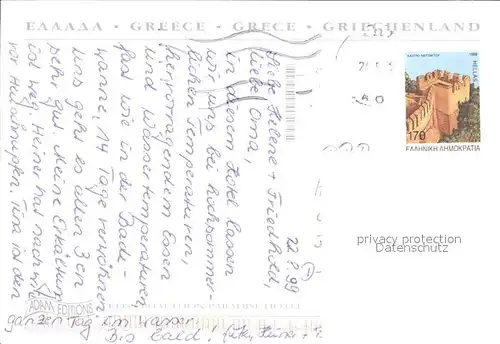 ΕΛΛΑΔΑ · GREECE · GRECE · GRIECHENLAND
22.8.99
Liebe Helene + Friedhold,
liebe Oma,
in diesem Hotel lassen
wir uns bei hochsommer-
lichen Temperaturen,
hervorragendem Essen
und Wassertemperaturen
fast wie in der Bade-
wanne, 14 Tage verwöhnen
Uns geht es allen 3en
sehr gut. Meine Erkältung
ist weg. Heiner hat noch
mit Heuschnupfen. Tina ist den
ganzen Tag im Wasser.
Bis bald!
ADAM EDITIONS
1998
HELLAS
170
ΕΛΛΗΝΙΚΗ ΔΗΜΟΚΡΑΤΙΑ
privacy protection
Datenschutz